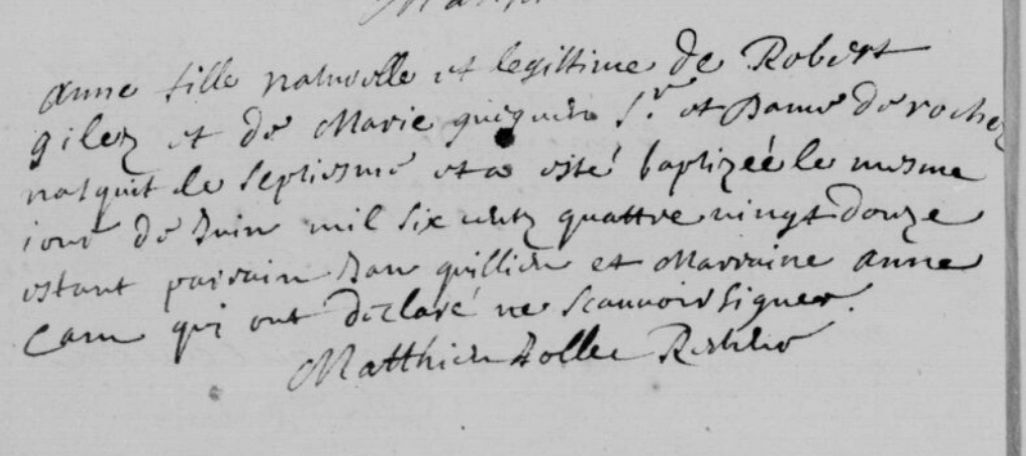 anne fille naturelle et legittime de Robert
gilez et de Marie guiguen Sr et Dame de roche
nasquit le septiesme et a esté baptizeé le mesme
iour de Juin mil six centz quattre vingt douze
estant parrain Jan quillien et Marraine anne
cam qui ont declaré ne scauvoir signer.
Matthieu